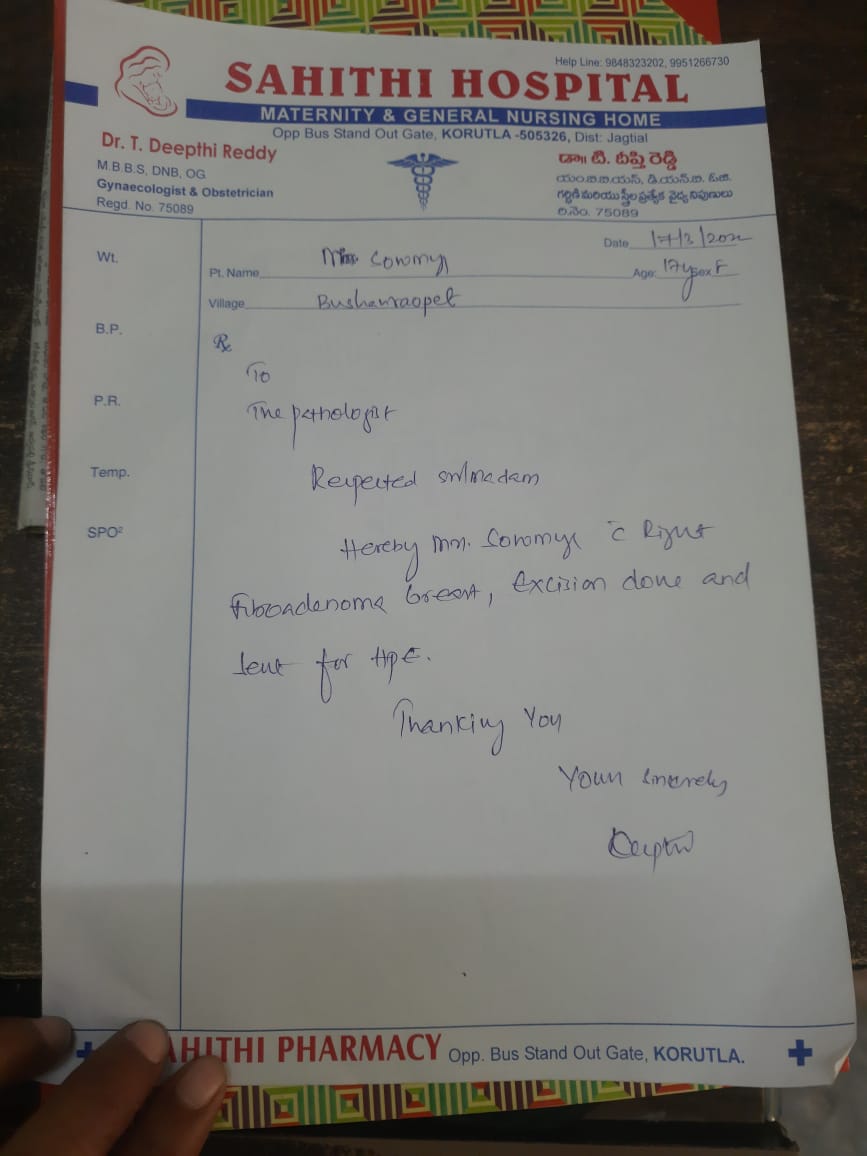 Help Line: 9848323202, 9951266730
SAHITHI HOSPITAL
MATERNITY & GENERAL NURSING HOME
Opp Bus Stand Out Gate, KORUTLA -505326, Dist: Jagtial
Dr. T. Deepthi Reddy
M.B.B.S, DNB, OG
Gynaecologist & Obstetrician
Regd. No. 75089
డా॥ టి. దీప్తి రెడ్డి
యం.బి.బి.యస్, డి.యన్.బి. ఓ.జి.
గర్భిణి మరియు స్త్రీల ప్రత్యేక వైద్య నిపుణులు
రి.నెం. 75089
Date
Wt.
Pt. Name Sowmya
Age: 17y Sex F
Village Bushanraopet
B.P.
Rx
To
P.R.
The pathologist
Temp.
Respected sir/madam
SPO²
Hereby Sowmya c̄ Right
fibroadenoma breast, excision done and
sent for HPE.
Thanking You
Yours sincerely
Deepthi
SAHITHI PHARMACY Opp. Bus Stand Out Gate, KORUTLA.